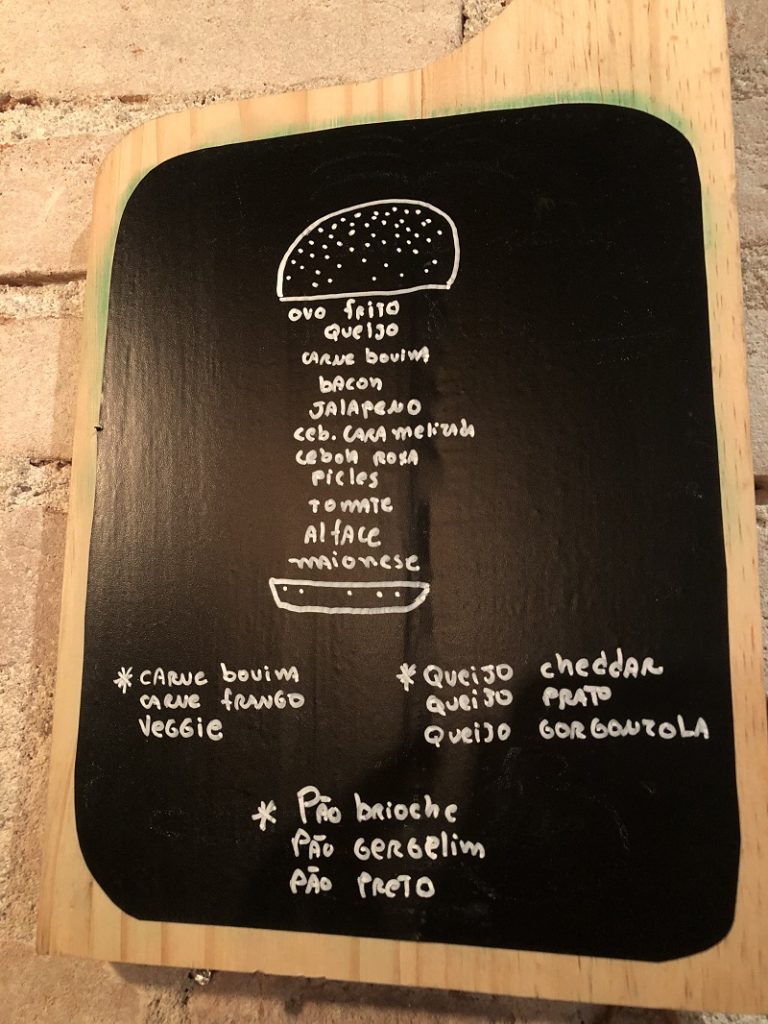 ovo frito
queijo
carne bovina
bacon
jalapeno
ceb. caramelizada
cebola roxa
picles
tomate
alface
maionese
* carne bovina
carne frango
veggie
* queijo cheddar
queijo prato
queijo gorgonzola
* Pão brioche
Pão gergelim
Pão preto